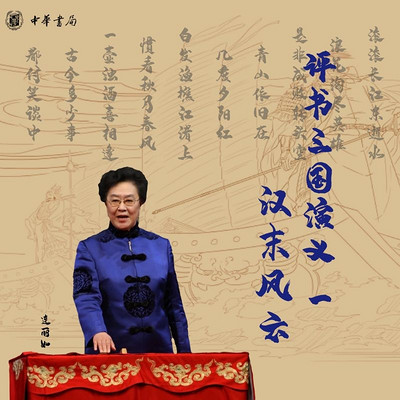 中華書局
滚滚长江东逝水
浪花淘尽英雄
是非成败转头空
青山依旧在
几度夕阳红
白发渔樵江渚上
惯看秋月春风
一壶浊酒喜相逢
古今多少事
都付笑谈中
评书三国演义 一
汉末风云
连丽如